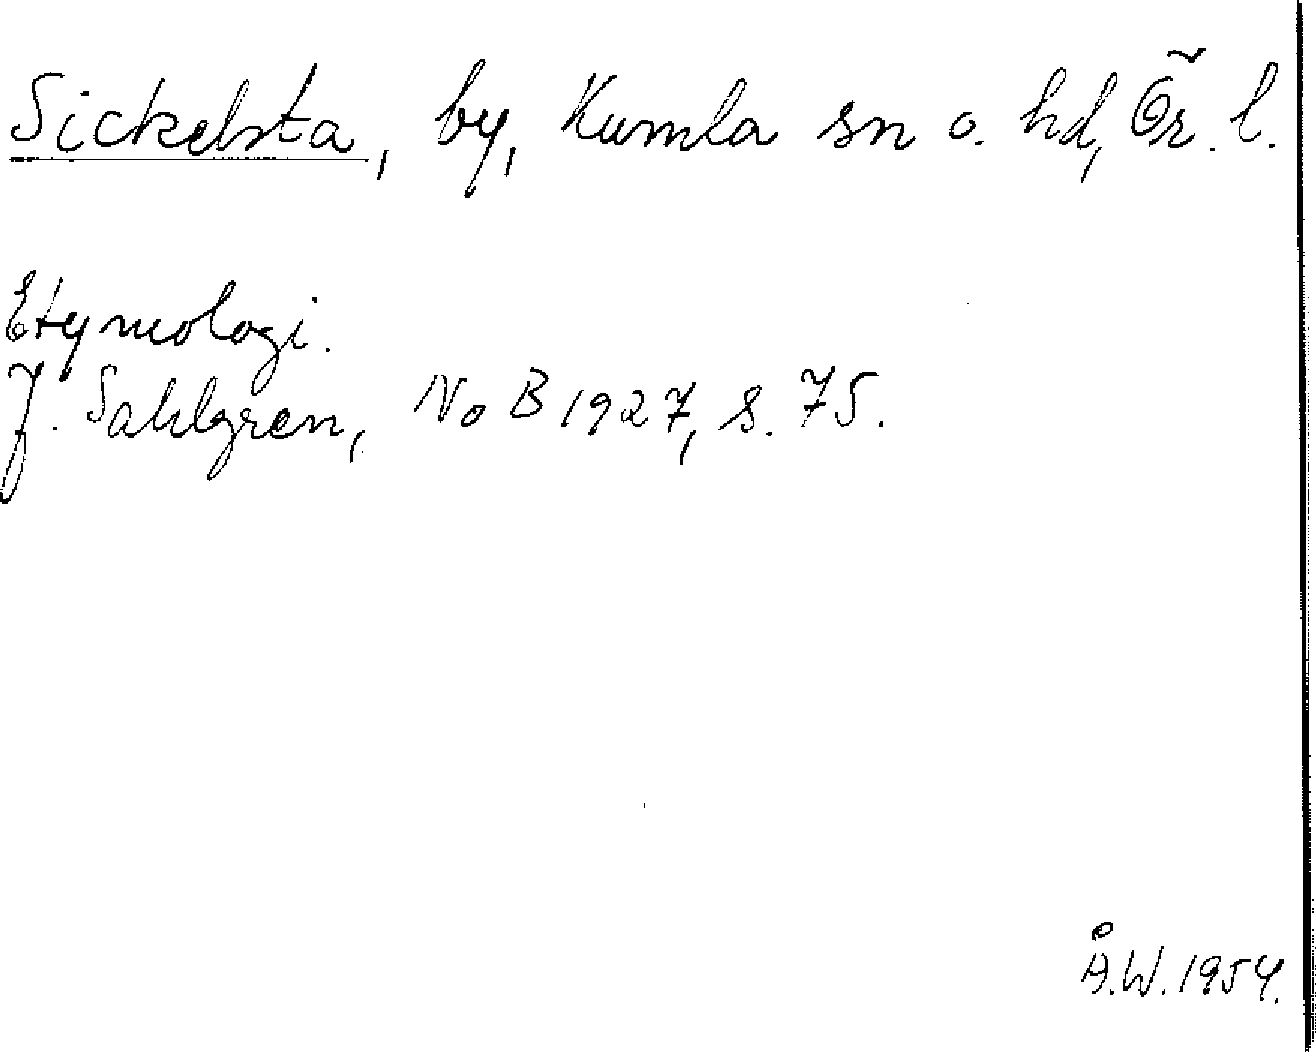 Sickelsta, by, Kumla sn o. hd, Ör. l.
Etymologi.
J. Sahlgren, NoB 1927, s. 75.
Å.W. 1954.